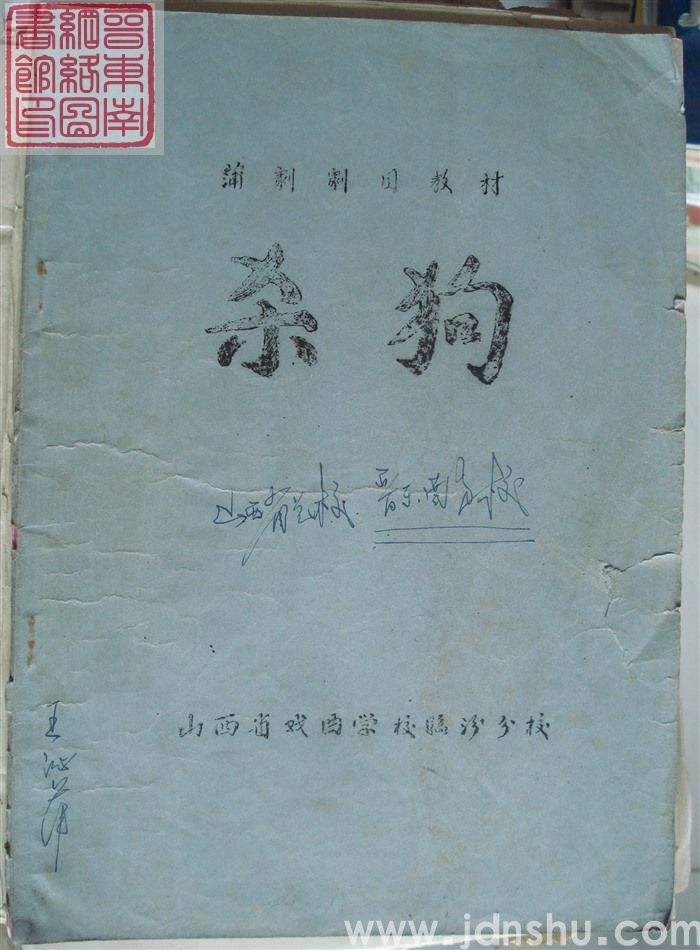 晉東南
網絡圖
書館印
蒲剧剧目教材
杀狗
山西省艺校 晋东南艺校
山西省戏曲学校临汾分校
王沁萍
www.jdnshu.com